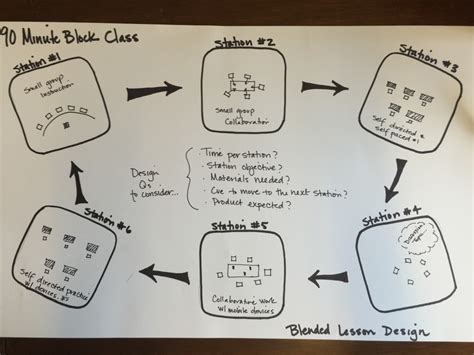 90 Minute Block Class
Station #1
Small group
Instruction
Station #2
Small group
Collaboration
Station #3
Self directed &
self paced #1
Design
Qs
to consider...
· Time per station?
· Station objective?
· Materials needed?
· Cue to move to the next station?
· Product expected?
Station #4
Discussion
Station #5
Collaborative work
w/ mobile devices
Station #6
Self directed practice
w/ devices #2
Blended Lesson Design